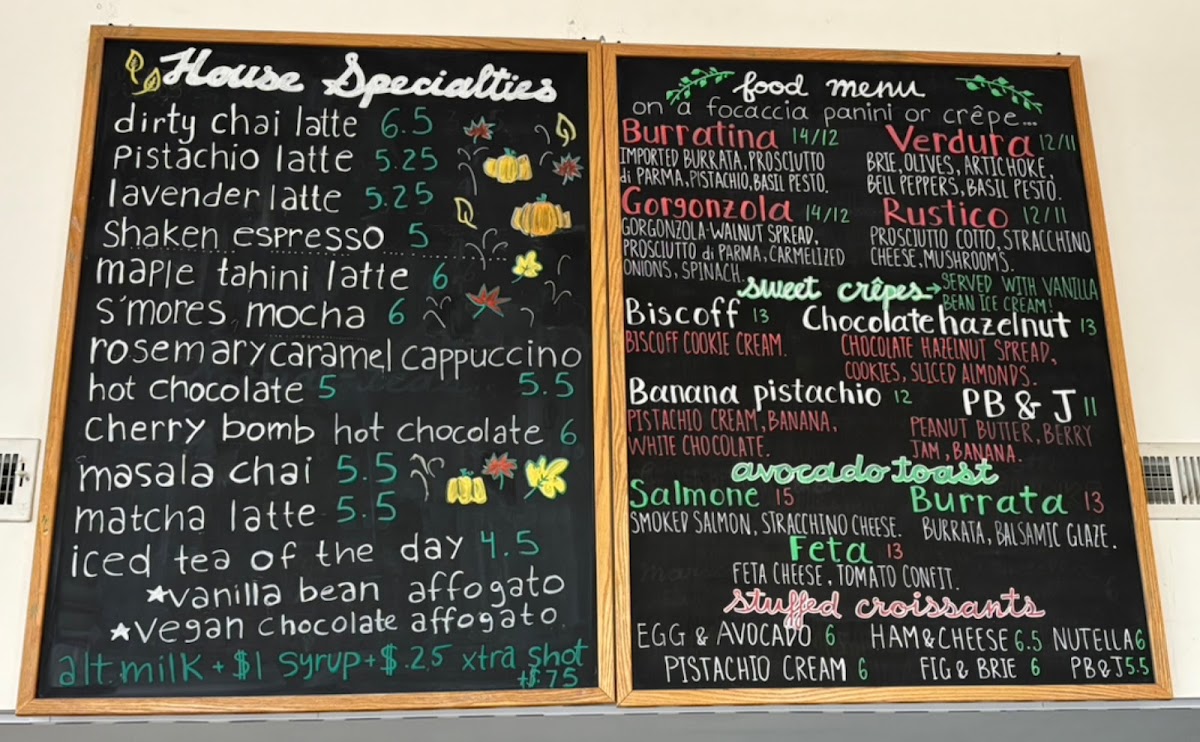 House Specialties
dirty chai latte 6.5
Pistachio latte 5.25
lavender latte 5.25
Shaken espresso 5
maple tahini latte 6
s'mores mocha 6
rosemary caramel cappuccino
hot chocolate 5 5.5
cherry bomb hot chocolate 6
masala chai 5.5
matcha latte 5.5
iced tea of the day 4.5
★vanilla bean affogato
★vegan chocolate affogato.
alt. milk + $1 syrup + $.25 xtra shot
+$.75
food menu
on a focaccia panini or crêpe...
Burratina 14/12
IMPORTED BURRATA, PROSCIUTTO
di PARMA, PISTACHIO, BASIL PESTO.
Verdura 12/11
BRIE, OLIVES, ARTICHOKE,
BELL PEPPERS, BASIL PESTO.
Gorgonzola 14/12
GORGONZOLA-WALNUT SPREAD,
PROSCIUTTO di PARMA, CARMELIZED
ONIONS, SPINACH
Rustico 12/11
PROSCIUTTO COTTO, STRACCHINO
CHEESE, MUSHROOMS.
sweet crêpes→ SERVED WITH VANILLA
BEAN ICE CREAM!
Biscoff 13
BISCOFF COOKIE CREAM.
Chocolate hazelnut 13
CHOCOLATE HAZELNUT SPREAD,
COOKIES, SLICED ALMONDS.
Banana pistachio 12
PISTACHIO CREAM, BANANA,
WHITE CHOCOLATE.
PB & J 11
PEANUT BUTTER, BERRY
JAM, BANANA.
avocado toast
Salmone 15
SMOKED SALMON, STRACCHINO CHEESE.
Burrata 13
BURRATA, BALSAMIC GLAZE.
Feta 13
FETA CHEESE, TOMATO CONFIT.
stuffed croissants
EGG & AVOCADO 6 HAM & CHEESE 6.5 NUTELLA 6
PISTACHIO CREAM 6 FIG & BRIE 6 PB & J 5.5